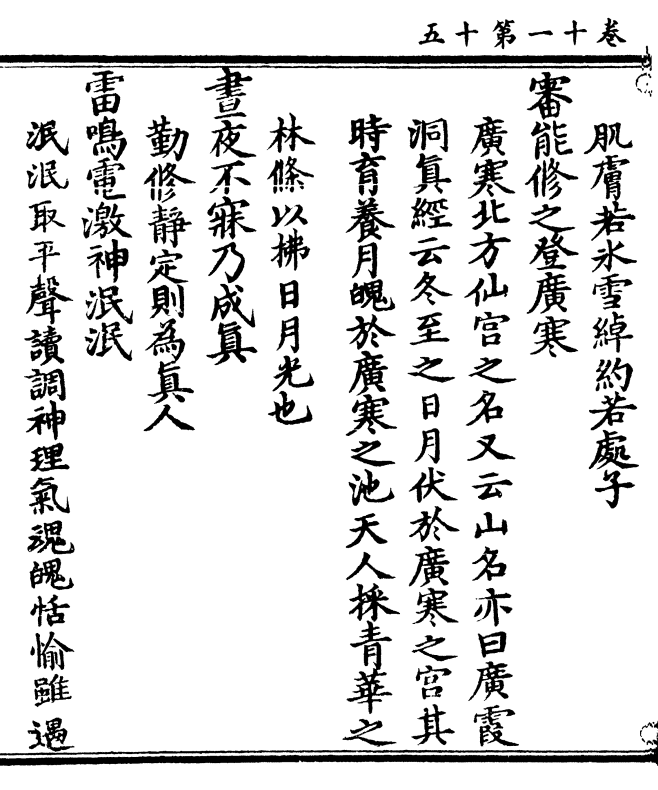 卷十一第十五
肌膚若氷雪綽約若處子
審能修之登廣寒
廣寒北方仙宫之名又云山名亦曰廣霞
洞真經云冬至之日月伏於廣寒之宫其
時育養月魄於廣寒之池天人採青華之
林條以拂日月光也
晝夜不寐乃成真
勤修靜定則為真人
雷鳴電激神泯泯
泯泯取平聲讀調神理氣魂魄恬愉雖遇